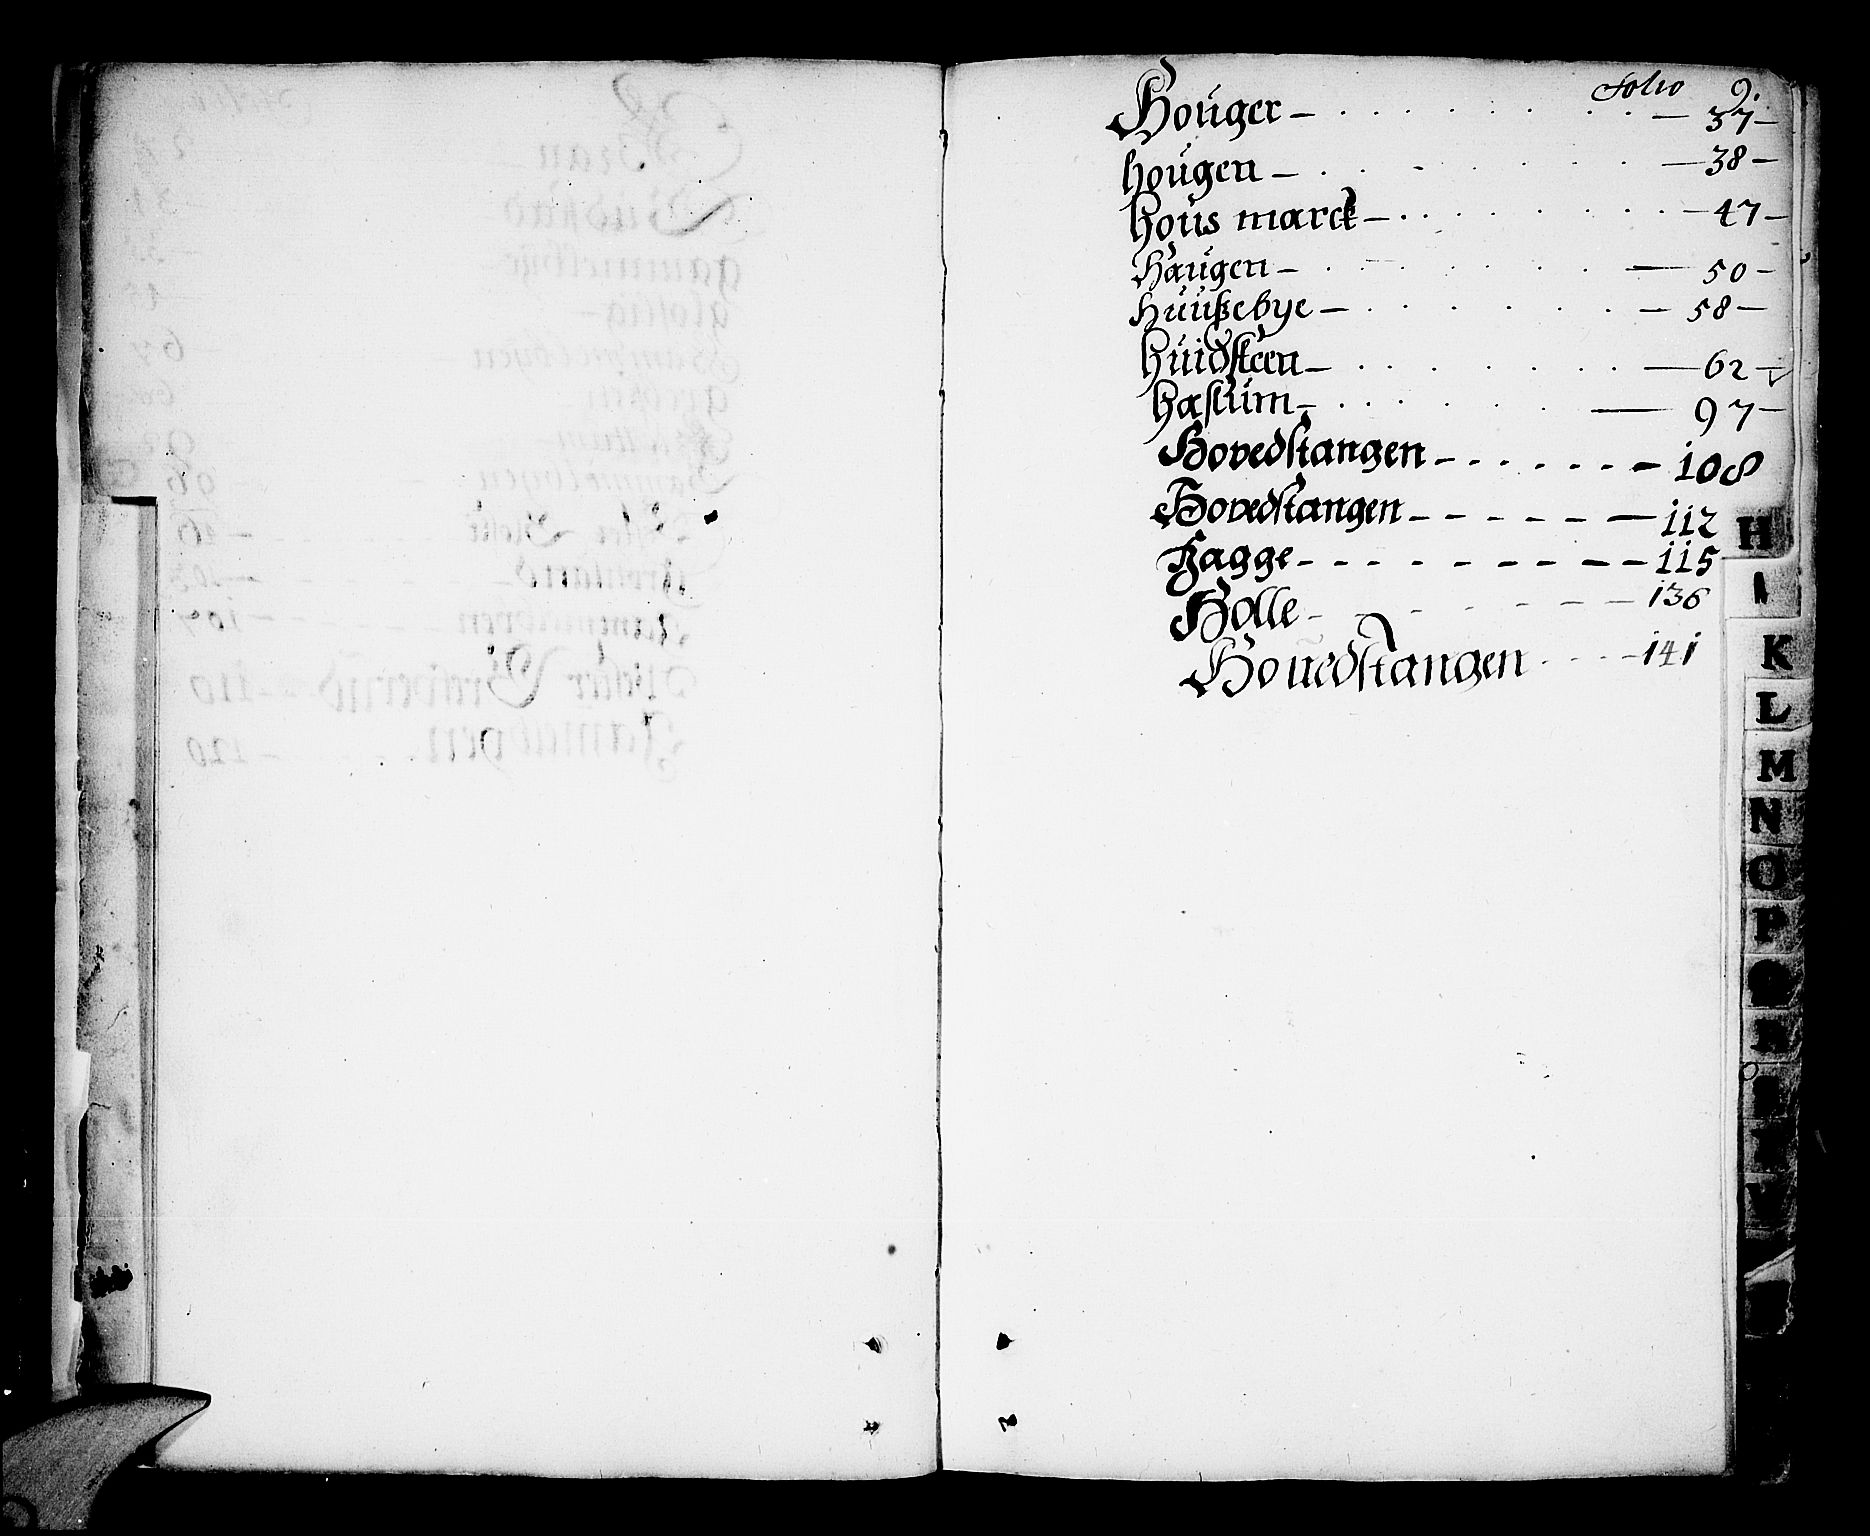 Folio 9.
Houger – 37 –
hougen – 38 –
hous marck – 47 –
Haugen – 50 –
Huußebye – 58 –
huidsteen – 62 –
haslum – 97 –
Hovedstangen – 108
Hovedstangen – 112
Hagge – 115
Holle – 136
Houedstangen – 141
H
I
K
L
M
N
O
P
Q
R